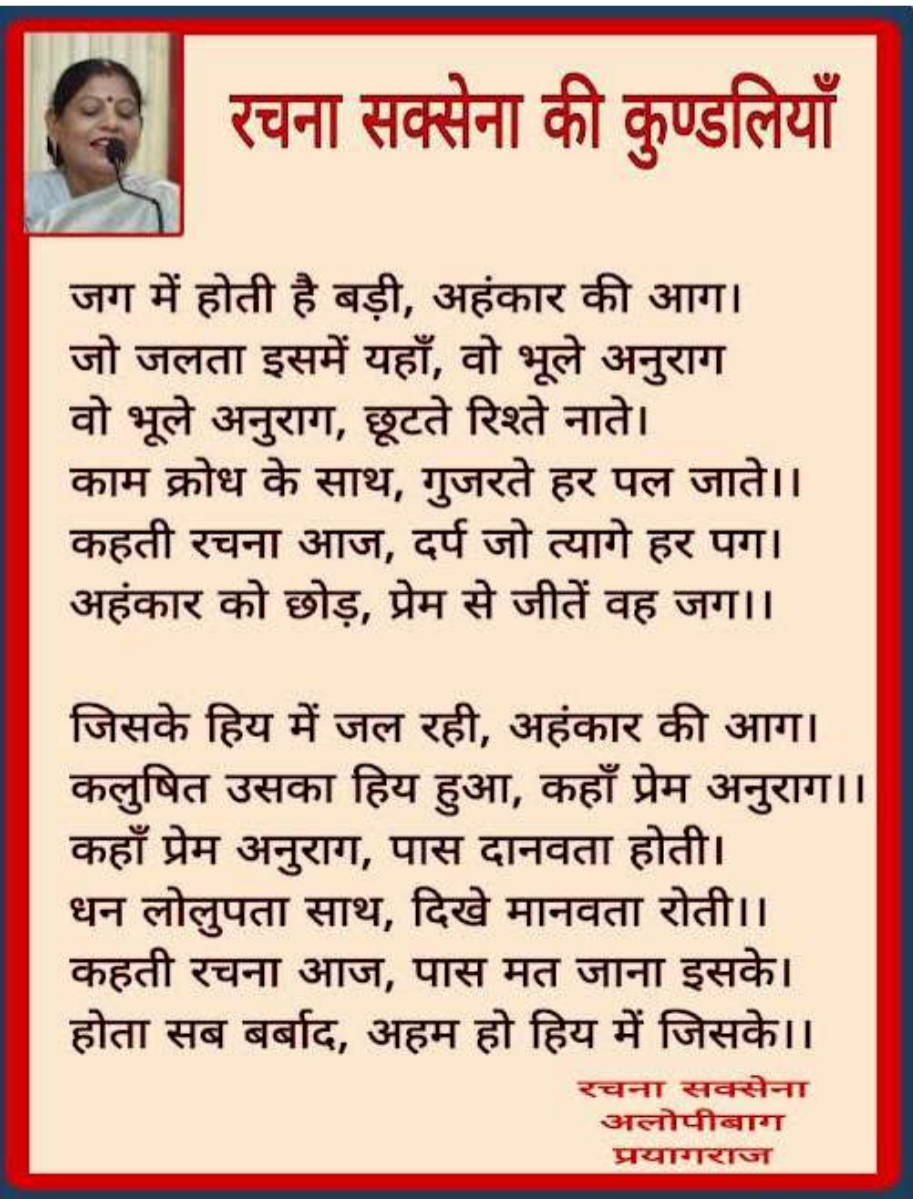 रचना सक्सेना की कुण्डलियाँ
जग में होती है बड़ी, अहंकार की आग।
जो जलता इसमें यहाँ, वो भूले अनुराग
वो भूले अनुराग, छूटते रिश्ते नाते।
काम क्रोध के साथ, गुजरते हर पल जाते।।
कहती रचना आज, दर्प जो त्यागे हर पग।
अहंकार को छोड़, प्रेम से जीतें वह जग।।
जिसके हिय में जल रही, अहंकार की आग।
कलुषित उसका हिय हुआ, कहाँ प्रेम अनुराग।।
कहाँ प्रेम अनुराग, पास दानवता होती।
धन लोलुपता साथ, दिखे मानवता रोती।।
कहती रचना आज, पास मत जाना इसके।
होता सब बर्बाद, अहम हो हिय में जिसके।।
रचना सक्सेना
अलोपीबाग
प्रयागराज